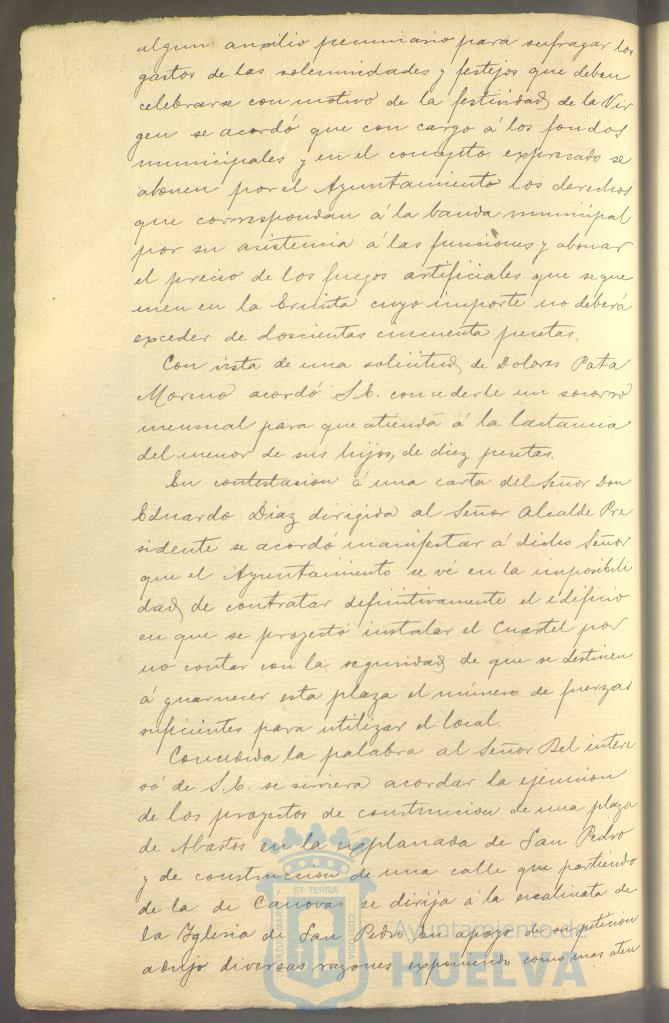 algun auxilio pecuniario para sufragar los
gastos de las solemnidades y festejos que deben
celebrarse con motivo de la festividad de la Vir
gen se acordó que con cargo á los fondos
municipales y en el concepto expresado se
abonen por el Ayuntamiento los derechos
que correspondan á la banda municipal
por su asistencia á las funciones y abonar
el precio de los fuegos artificiales que se que
men en la Ermita cuyo importe no deberá
exceder de doscientas cincuenta pesetas.
Con vista de una solicitud de Dolores Pata
Moreno acordó S.E. concederle un socorro
mensual para que atienda á la lactancia
del menor de sus hijos, de diez pesetas.
En contestacion á una carta del Señor Don
Eduardo Diaz dirigida al Señor Alcalde Pre
sidente se acordó manifestar á dicho Señor
que el Ayuntamiento se vé en la imposibili
dad de contratar definitivamente el edificio
en que se proyectó instalar el Cuartel por
no contar con la seguridad de que se destinen
á guarnecer esta plaza el número de fuerzas
suficientes para utilizar el local.
Concedida la palabra al Señor Bel intere
só de S.E. se sirviera acordar la ejecucion
de los proyectos de construccion de una plaza
de Abastos en la explanada de San Pedro
y de construccion de una calle que partiendo
de la de Canovas se dirija á la escalinata de
la Iglesia de San Pedro, en apoyo de su peticion
adujo diversas razones exponiendo como mas aten
ET TERRÆ
PORTUS MARIS
CUSTODIA
Ayuntamiento de
HUELVA